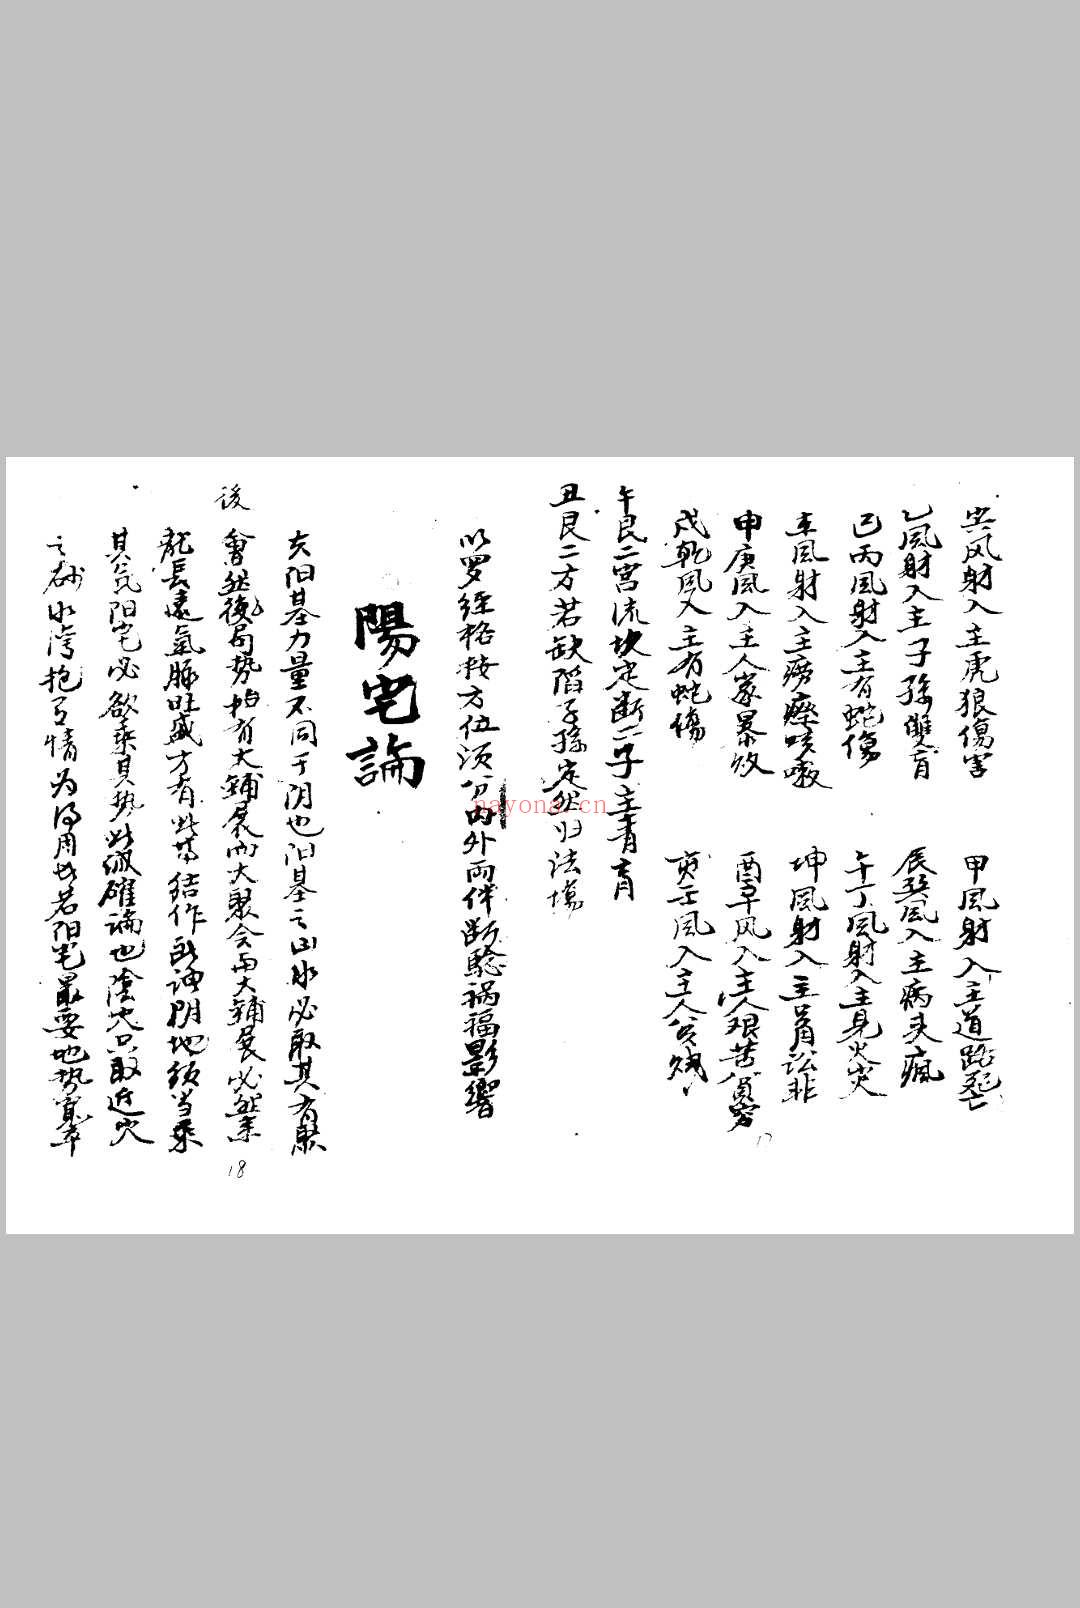 風射入主虎狼傷害
甲風射入主道路死亡
乙風射入主子孫雙盲
辰巽風入主病头瘋
巳丙風射入主有蛇傷
午丁風射入主見火灾
風射入主痨瘵咳嗽
坤風射入主官訟非
申庚風入主人家暴败
酉辛风入主人艰苦貧穷
戌乾風入主有蛇傷
亥壬風入主人公贱
午艮二宫流坎定断二子主青盲
丑艮二方若缺陷子孫定然归法場
以罗经格按方位须分内外两伴断驗禍福影響
17
陽宅論
夫阳基力量不同于阴也阳基之山水必取其有聚
後
會然後局势始有大鋪展而大聚会而大鋪展必然来
龍長遠氣脉旺盛方有此等结作所謂阴地须当乘
其氣阳宅必欲乘其势此誠確論也陰地只取近穴
之砂水湾抱有情为得用也若阳宅最要地势寬平
18
nayona.cn